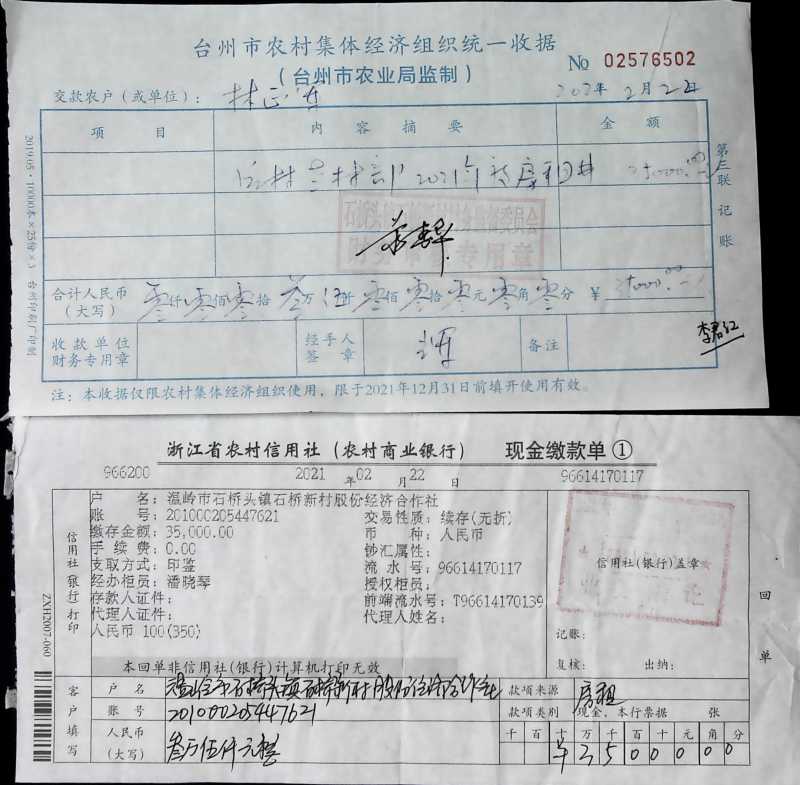 台州市农村集体经济组织统一收据
（台州市农业局监制）
№ 02576502
交款农户（或单位）：林正
2021年2月22
项 目 内 容 摘 要 金 额
2021年
35000.00
石桥头镇石桥新村
财务 专用章
合计人民币
（大写）
零仟零佰零拾叁万伍仟零佰零拾零元零角零分 ¥ 35000.00
收款单位
财务专用章
经手人
签 章
备注
李君红
注：本收据仅限农村集体经济组织使用，限于2021年12月31日前填开使用有效。
第三联 记账
2019.05·10000本×25份×3 台州印刷厂印制
浙江省农村信用社（农村商业银行） 现金缴款单①
966200 2021 年 02 月 22 日 96614170117
户 名：温岭市石桥头镇石桥新村股份经济合作社
账 号：201000205447621 交易性质：续存(无折)
缴存金额：35,000.00 币 种：人民币
手 续 费：0.00 钞汇属性：
支取方式：印鉴 流 水 号：96614170117
经办柜员：潘晓琴 授权柜员：
存款人证件： 前端流水号：T96614170139
代理人证件： 代理人姓名：
人民币 100(350)
信用社(银行)打印
信用社(银行)盖章
记账：
复核： 出纳：
回单
本回单非信用社(银行)计算机打印无效
ZXH2007-060
客户填写
户 名 温岭市石桥头镇石桥新村股份经济合作社 款项来源 房租
账 号 201000205447621 款项类别 现金、本行票据 张
人民币
（大写）
叁万伍仟元整
千 百 十 万 千 百 十 元 角 分
¥ 3 5 0 0 0 0 0